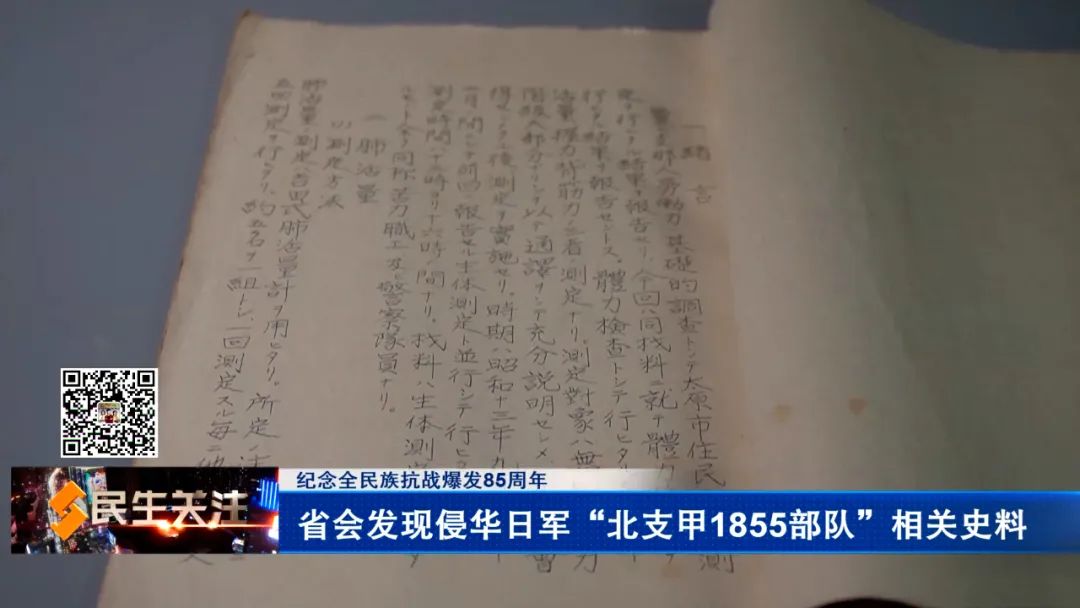 一 緒言
支那人労働力ノ基礎的調査トシテ太原市住民 測
定ヲ行ヒタル結果ヲ報告セリ。今回ハ同材料ニ就テ體力
行ヒタル結果ヲ報告セントス。體力檢査トシテ行ヒタル
活量、握力、背筋力ノ三者ノ測定ナリ。測定對象ハ無 力
階級 ヲ以テ通譯ヲシテ充分説明セシメ 習
得セシメタル後、測定ヲ實施セリ。時期ハ昭和十三年九
月ノ間ニシテ前回報告セル生体測定ト並行シテ行ヒ
測定時間ハ十時ヨリ十六時ノ間ナリ。材料ハ生体測定
ルモノト全ク同ジ苦力、職工及ビ警察隊員ナリ。
二 肺活量
(1)測定方法
肺活量ノ測定ハ吉田式肺活量計ヲ用ヒタリ。所定ノ
五回測定ヲ行ヒタリ。約五名ヲ一組トシ、一回測定スル毎ニ他 人
纪念全民族抗战爆发85周年
民生关注
省会发现侵华日军“北支甲1855部队”相关史料